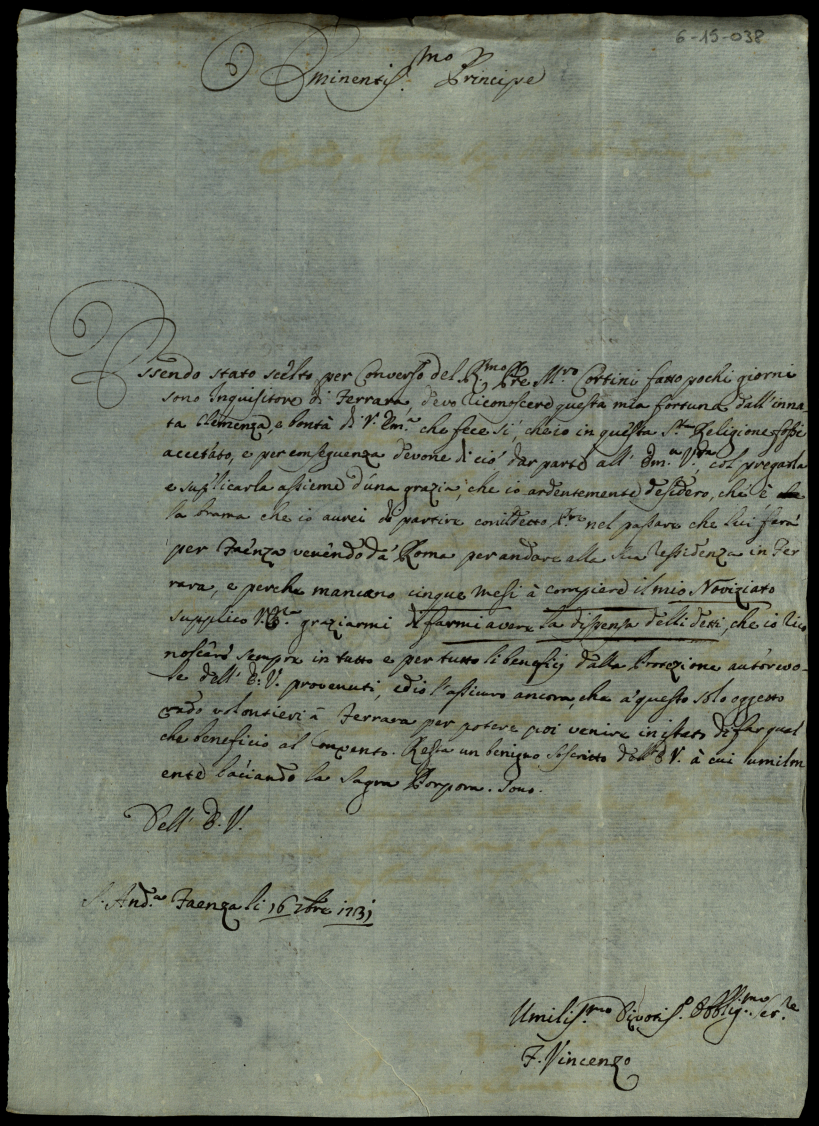 6-15-038
Eminentis.mo Principe
Essendo stato scelto per Converso del R.mo Pre M.ro Cortini fatto pochi giorni
sono Inquisitore di Ferrara, devo riconoscere questa mia fortuna dall'inna
ta Clemenza, e bontà di V. Em.a che fece sì, che io in questa S.ta Religione fossi
accetato, e per conseguenza devone di ciò dar parte all' Em.a V.ra, col pregarla
e suplicarla assieme d'una grazia, che io ardentemente desidero, che è
la brama che io aurei di partire con detto P.re nel passare che lui farà
per Faenza venendo da Roma per andare alla sua ressidenza in Fer
rara, e perche mancano cinque mesi à compiere il mio Noviziato
supplico V. E.a graziarmi di farmi avere la dispensa delli detti, che io rico
noscerò sempre in tutto e per tutto li beneficij dalla Protezione autorevo
le dell' E. V. provenuti, ed io l'assicuro ancora, che à questo solo oggetto
vado volontieri à Ferrara per potere poi venire in istato di far qual
che beneficio al Convento. Resta un benigno rescritto dell' E V. à cui umilm
ente baciando la Sagra Porpora. sono.
Dell' E. V.
S. And.a Faenza li 16 7bre 1731
Umilis.mo Divotis.o Obblig.mo Ser.re
F. Vincenzo